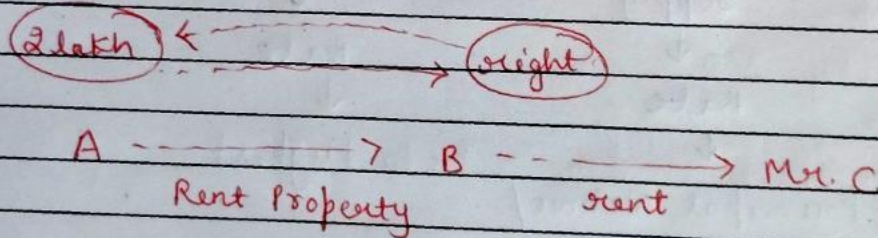 2 lakh right
A B Mr. C
Rent Property rent